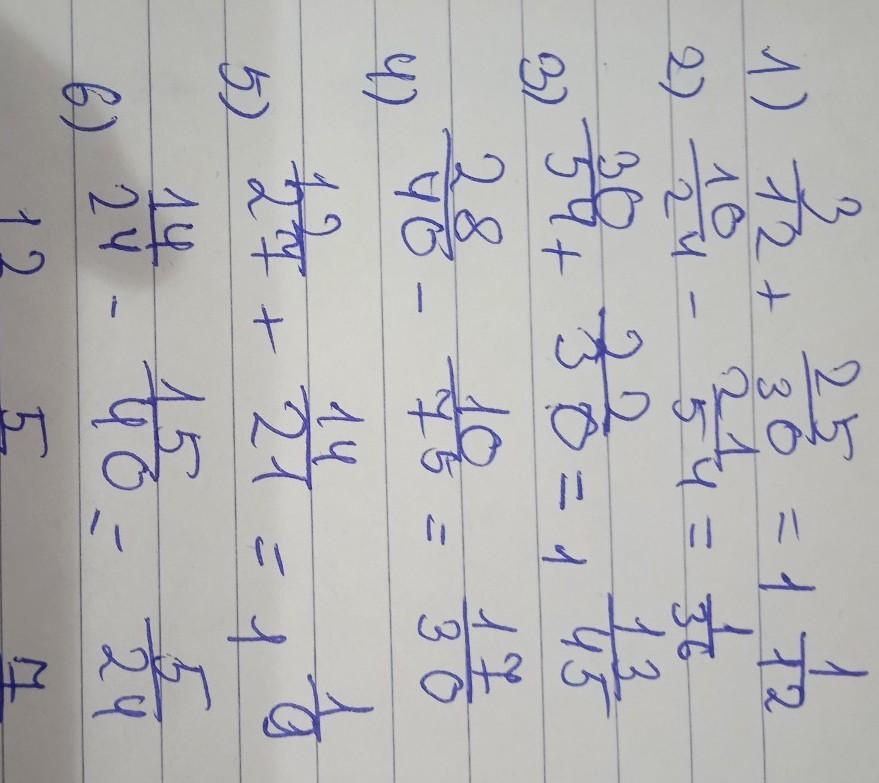 1) 3/12 + 25/30 = 1 1/12
2) 10/24 - 21/54 = 1/36
3) 30/54 + 22/30 = 1 13/45
4) 28/40 - 10/75 = 17/30
5) 12/27 + 14/21 = 1 1/9
6) 14/24 - 15/40 = 5/24
12 5 7